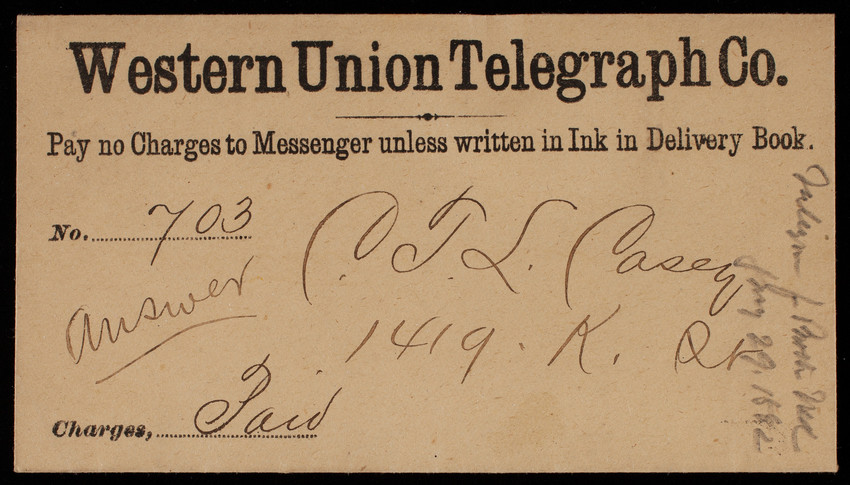 Western Union Telegraph Co.
Pay no Charges to Messenger unless written in Ink in Delivery Book.
No. 703
C. T. L. Casey
Answer
1419. K. St
Charges, Paid
29 1882